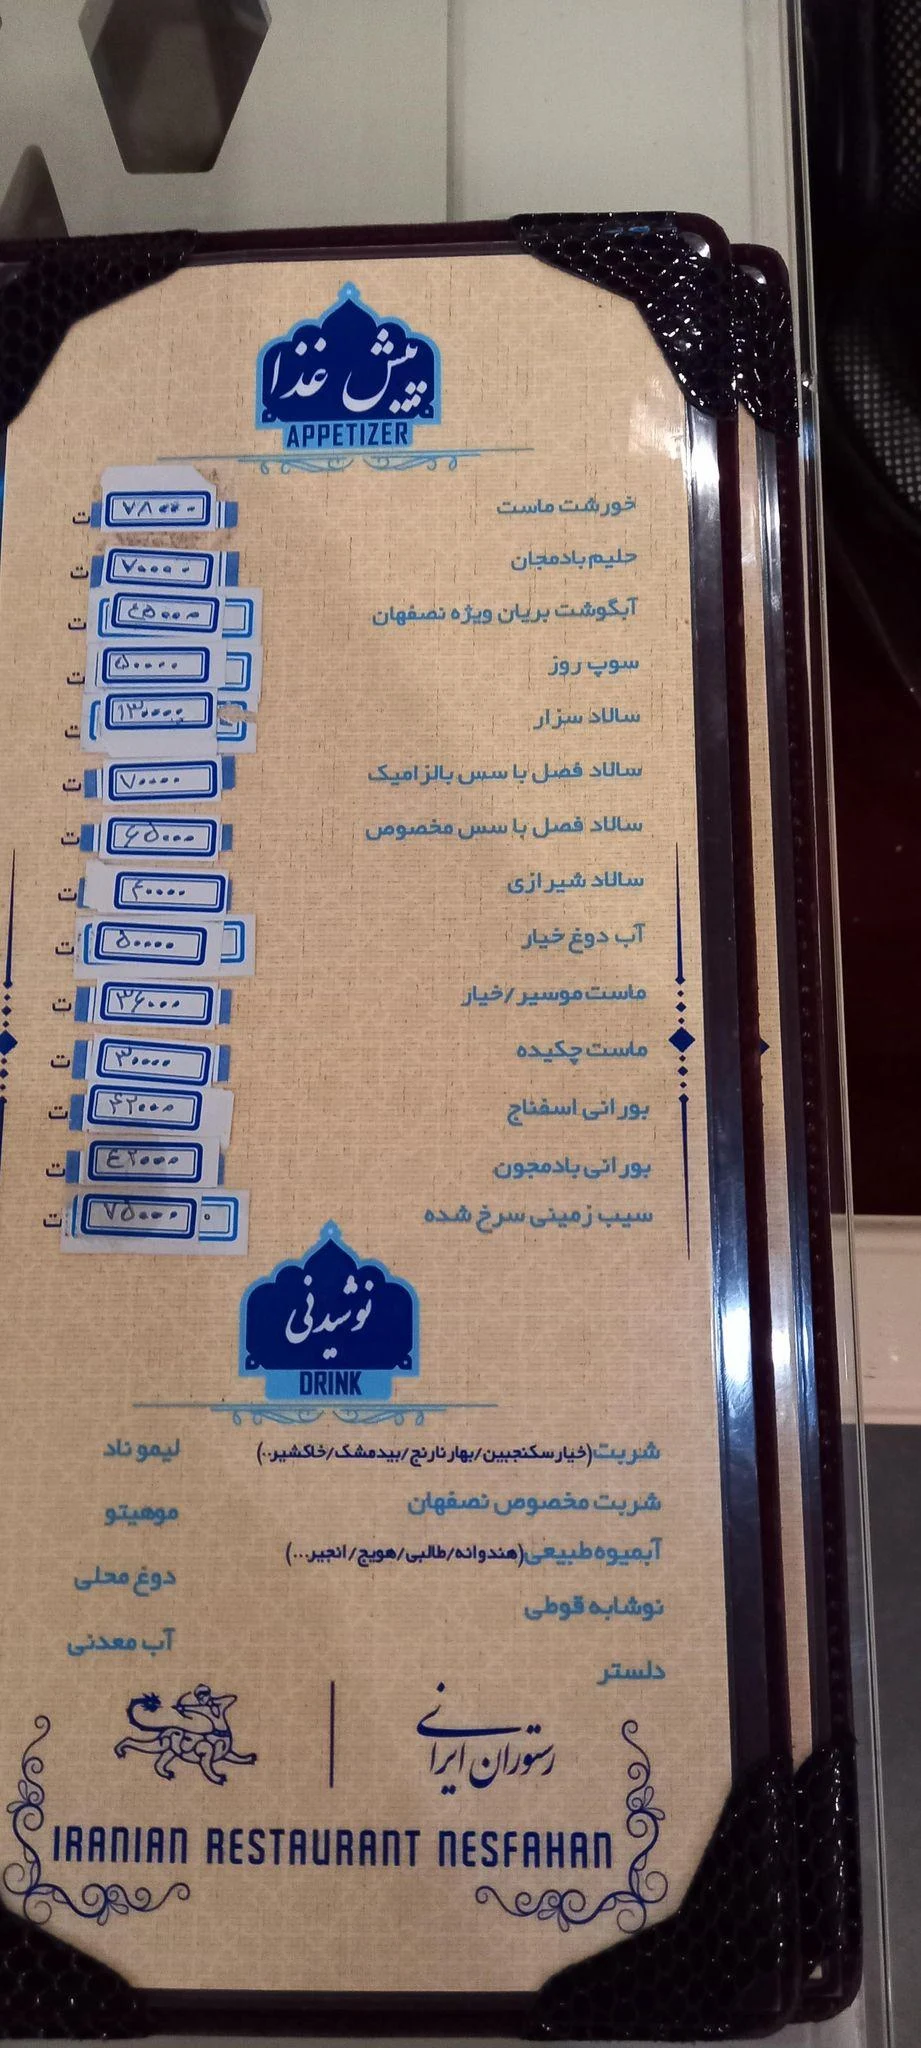 پیش غذا
APPETIZER
خورشت ماست ۷۸۰۰۰ ت
حلیم بادمجان ۷۰۰۰۰ ت
آبگوشت بریان ویژه نصفهان ۴۵۰۰۰ ت
سوپ روز ۵۰۰۰۰ ت
سالاد سزار ۱۳۰۰۰۰ ت
سالاد فصل با سس بالزامیک ۷۰۰۰۰ ت
سالاد فصل با سس مخصوص ۶۵۰۰۰ ت
سالاد شیرازی ۴۰۰۰۰ ت
آب دوغ خیار ۵۰۰۰۰ ت
ماست موسیر/خیار ۳۶۰۰۰ ت
ماست چکیده ۳۰۰۰۰ ت
بورانی اسفناج ۴۲۰۰۰ ت
بورانی بادمجون ۴۲۰۰۰ ت
سیب زمینی سرخ شده ۷۵۰۰۰ ت
نوشیدنی
DRINK
شربت(خیارسکنجبین/بهارنارنج/بیدمشک/خاکشیر..) لیموناد
شربت مخصوص نصفهان موهیتو
آبمیوه طبیعی(هندوانه/طالبی/هویج/انجیر...) دوغ محلی
نوشابه قوطی آب معدنی
دلستر
رستوران ایرانی
IRANIAN RESTAURANT NESFAHAN